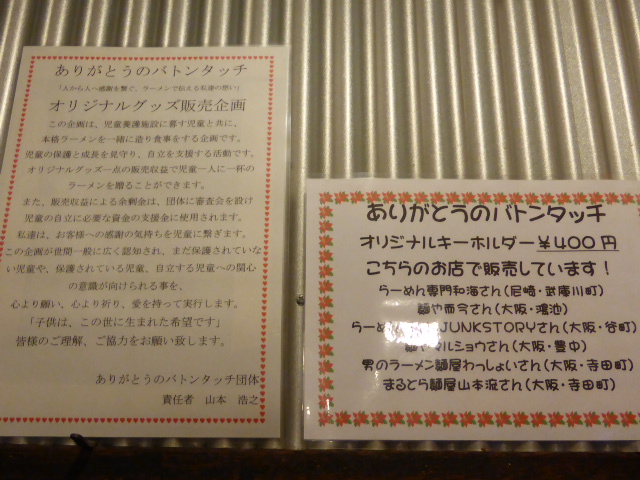 ありがとうのバトンタッチ
「人から人へ感謝を繋ぐ、ラーメンで伝える私達の想い」
オリジナルグッズ販売企画
この企画は、児童養護施設に暮す児童と共に、
本格ラーメンを一緒に造り食事をする企画です。
児童の保護と成長を見守り、自立を支援する活動です。
オリジナルグッズ一点の販売収益で児童一人に一杯の
ラーメンを贈ることができます。
また、販売収益による余剰金は、団体に審査会を設け
児童の自立に必要な資金の支援金に使用されます。
私達は、お客様への感謝の気持ちを児童に繋ぎます。
この企画が世間一般に広く認知され、まだ保護されていな
い児童や、保護されている児童、自立する児童への関心
の意識が向けられる事を、
心より願い、心より祈り、愛を持って実行します。
「子供は、この世に生まれた希望です」
皆様のご理解、ご協力をお願い致します。
ありがとうのバトンタッチ団体
責任者 山本 浩之
ありがとうのバトンタッチ
オリジナルキーホルダー ¥400円
こちらのお店で販売しています!
らーめん専門和海さん(尼崎・武庫川町)
麺や而今さん(大阪・鴻池)
らーめん JUNKSTORYさん(大阪・谷町)
麺やマルショウさん(大阪・豊中)
男のラーメン麺屋わっしょいさん(大阪・寺田町)
まるとら麺屋山本流さん(大阪・寺田町)